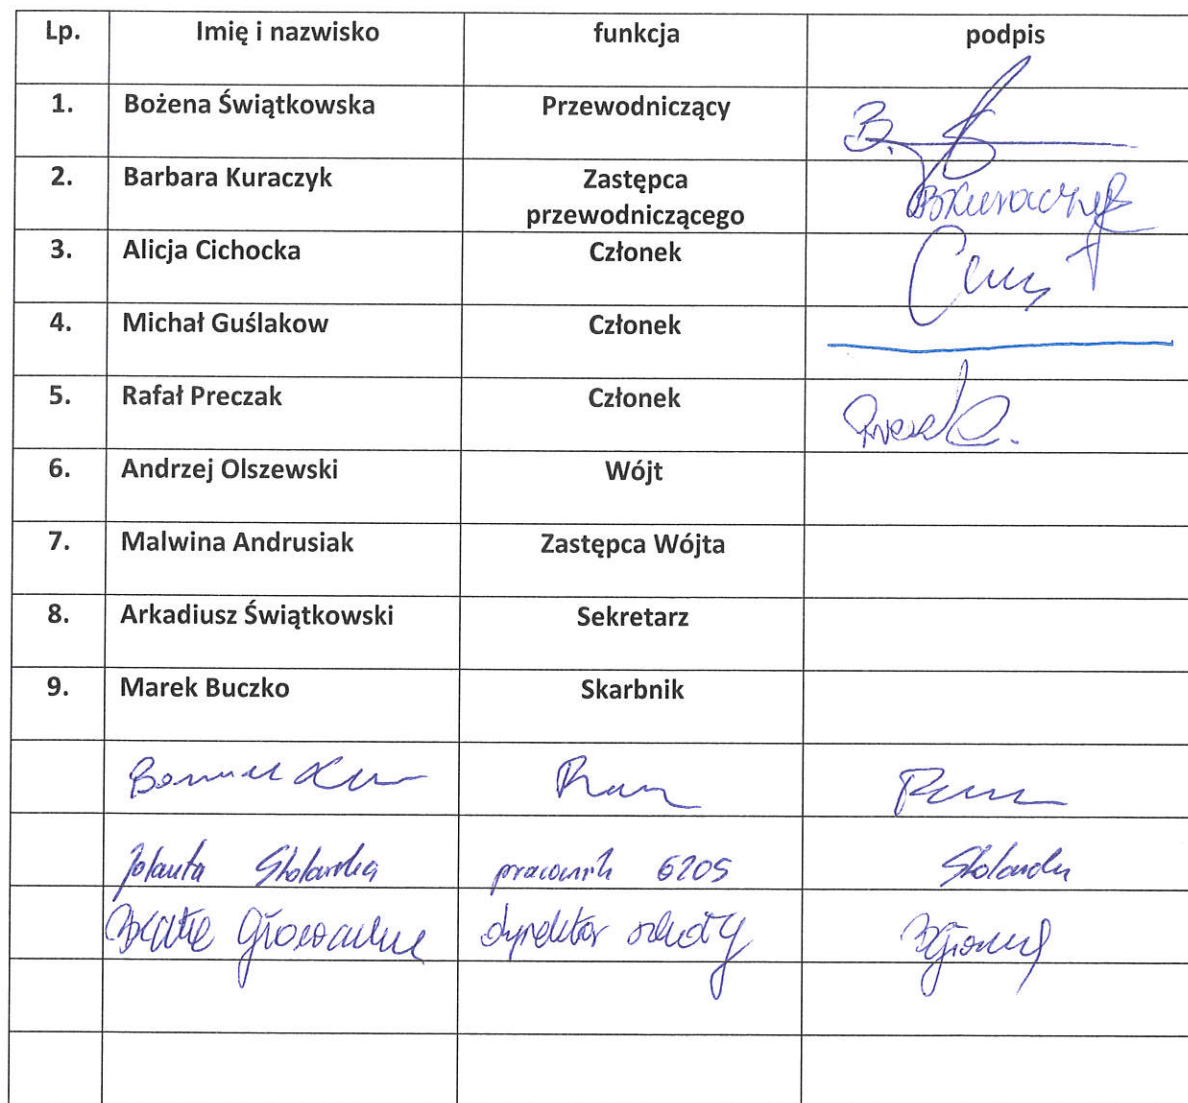 Lp. Imię i nazwisko funkcja podpis
1. Bożena Świątkowska Przewodniczący B.
2. Barbara Kuraczyk Zastępca
przewodniczącego BKuraczyk
3. Alicja Cichocka Członek
4. Michał Guślakow Członek
5. Rafał Preczak Członek
6. Andrzej Olszewski Wójt
7. Malwina Andrusiak Zastępca Wójta
8. Arkadiusz Świątkowski Sekretarz
9. Marek Buczko Skarbnik
Jolanta pracownik
dyrektor szkoły